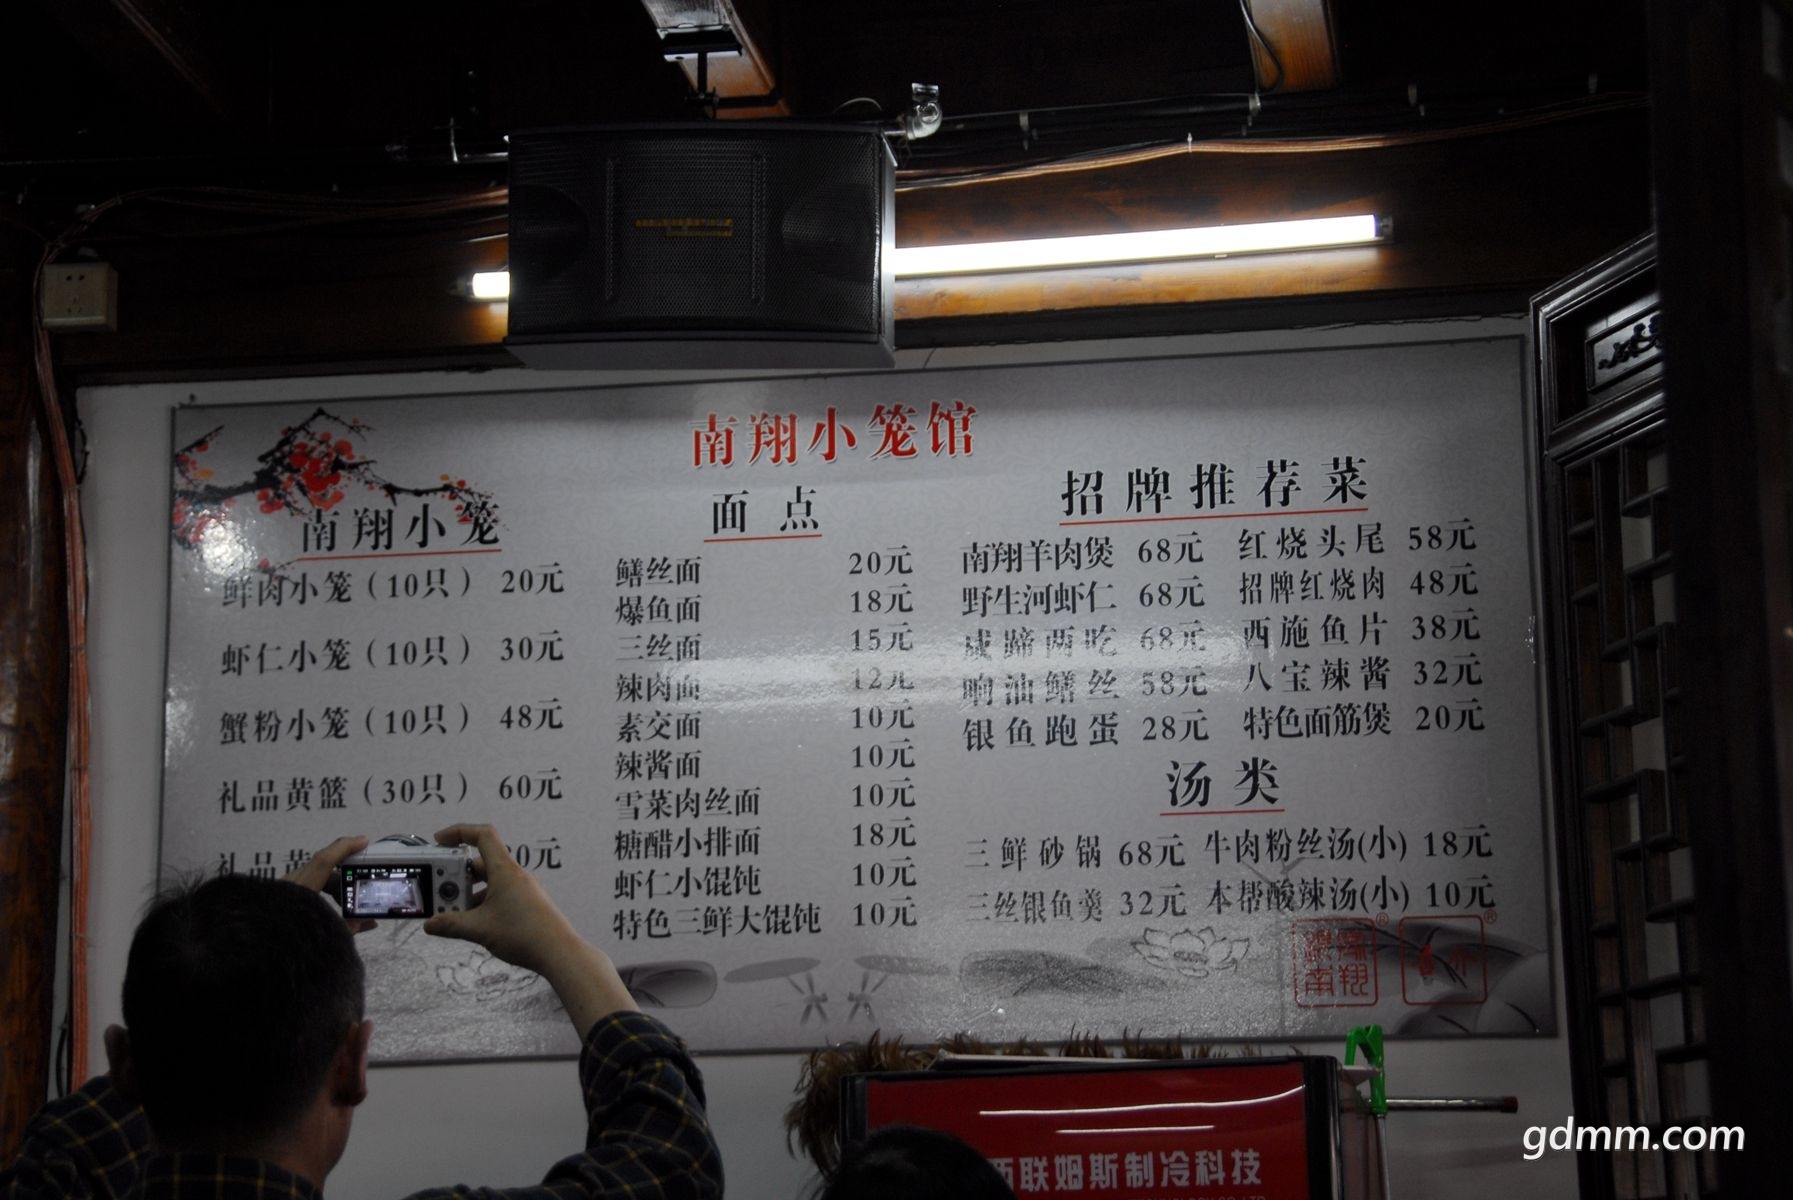 南翔小笼馆
南翔小笼
鲜肉小笼（10只） 20元
虾仁小笼（10只） 30元
蟹粉小笼（10只） 48元
礼品黄篮（30只） 60元
礼品黄 0元
面点
鳝丝面 20元
爆鱼面 18元
三丝面 15元
辣肉面 12元
素交面 10元
辣酱面 10元
雪菜肉丝面 10元
糖醋小排面 18元
虾仁小馄饨 10元
特色三鲜大馄饨 10元
招牌推荐菜
南翔羊肉煲 68元 红烧头尾 58元
野生河虾仁 68元 招牌红烧肉 48元
咸蹄两吃 68元 西施鱼片 38元
响油鳝丝 58元 八宝辣酱 32元
银鱼跑蛋 28元 特色面筋煲 20元
汤类
三鲜砂锅 68元 牛肉粉丝汤(小) 18元
三丝银鱼羹 32元 本帮酸辣汤(小) 10元
联姆斯制冷科技
gdmm.com